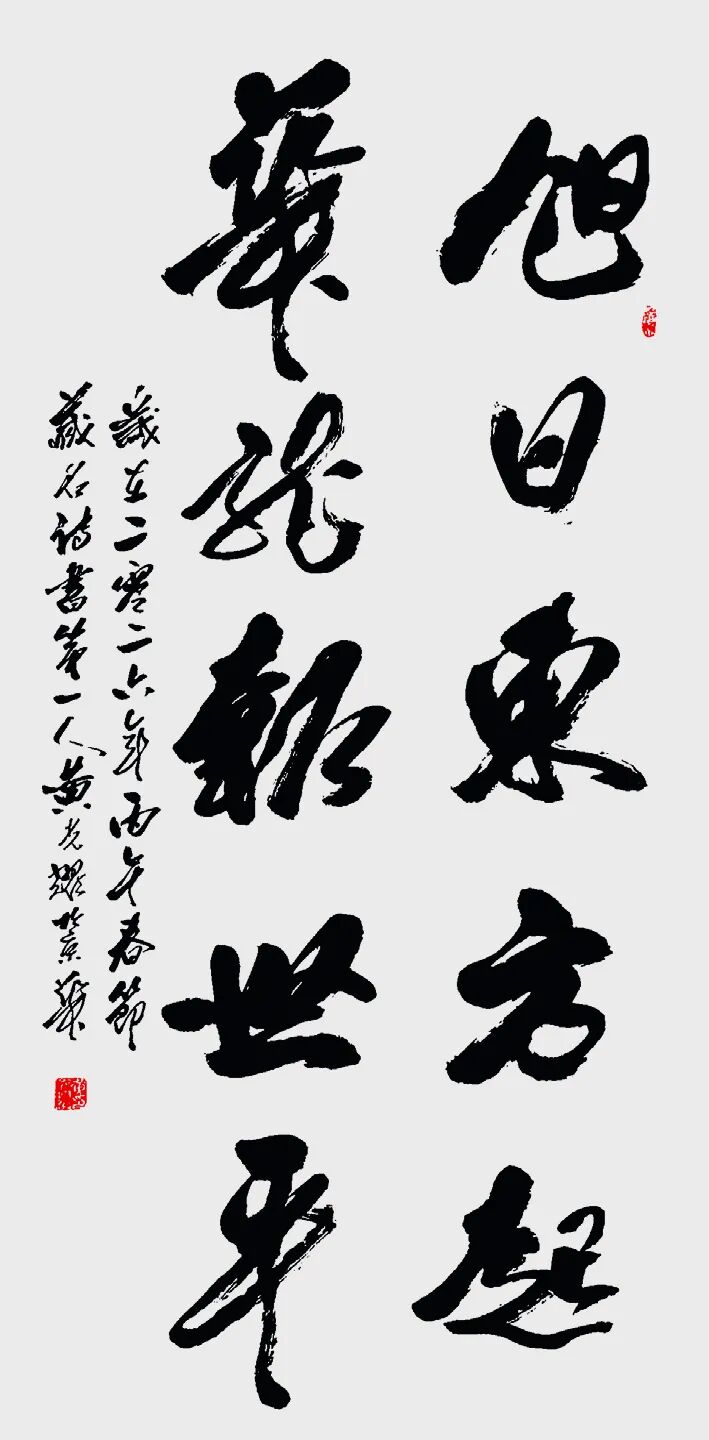 旭日東方起
華龍報世平
歲在二零二六年丙午春節
藏名詩書第一人黄光耀於京華